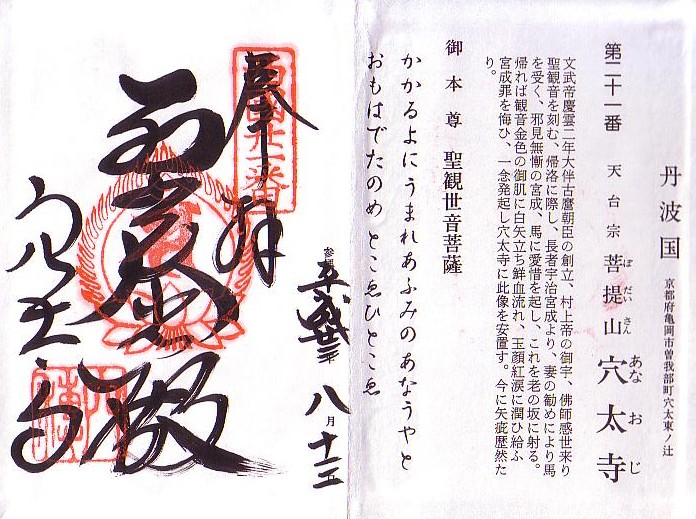 丹波国 京都府亀岡市曽我部町穴太東ノ辻
第二十一番 天台宗 菩提山 穴太寺
ぼだいさん あなおじ
文武帝慶雲二年大伴古麿朝臣の創立、村上帝の御宇、佛師感世来り
聖観音を刻む、帰洛に際し、長者宇治宮成より、妻の勧めにより馬
を受く、邪見無慚の宮成、馬に愛惜を起し、これを老の坂に射る。
帰れば観音金色の御肌に白矢立ち鮮血流れ、玉顔紅涙に潤ひ給ふ
宮成罪を悔ひ、一念発起し穴太寺に此像を安置す。今に矢疵歴然た
り。
御本尊 聖観世音菩薩
かかるよにうまれあふみのあなうやと
おもはでたのめ とこゑひとこゑ
平成廿三年 八月十三
奉拝
西国廿一番
穴太寺